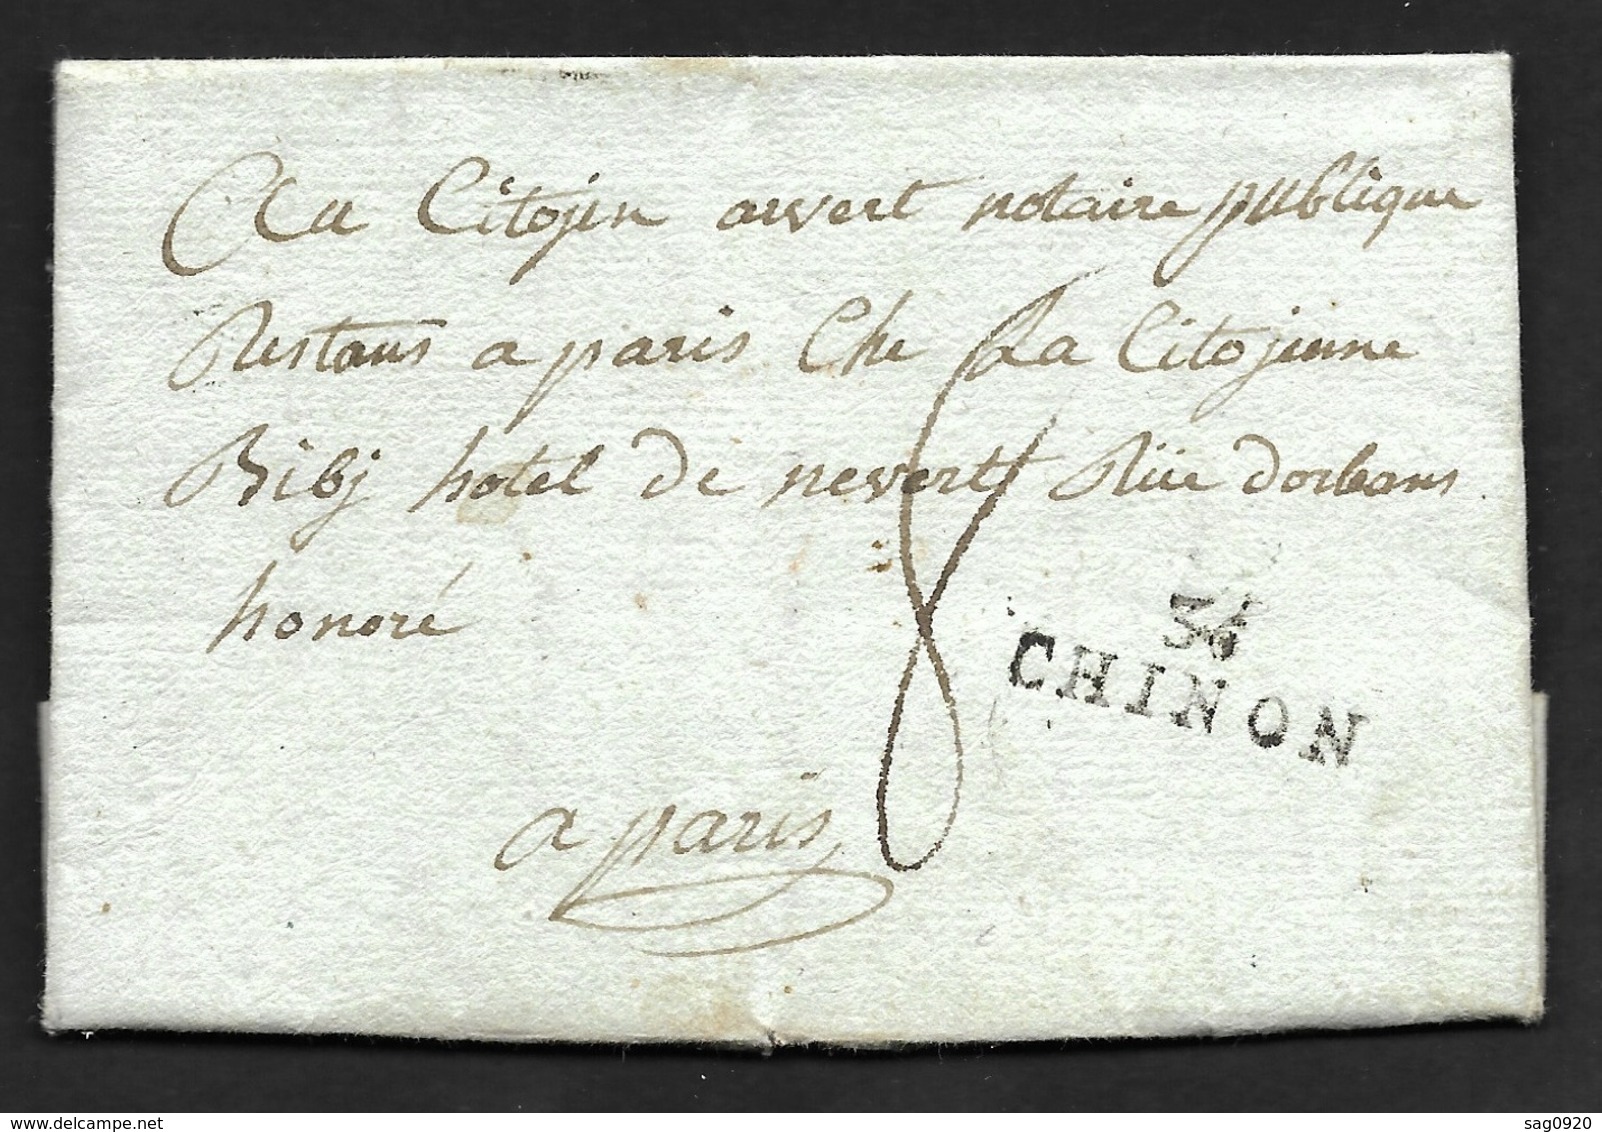 Au Citojen arvert notaire publique
Restans a paris Che La Citojenne
Bibj hotel de nevert Rüe dorleans
honoré
36
CHINON
8
a paris
www.delcampe.net
sag0920